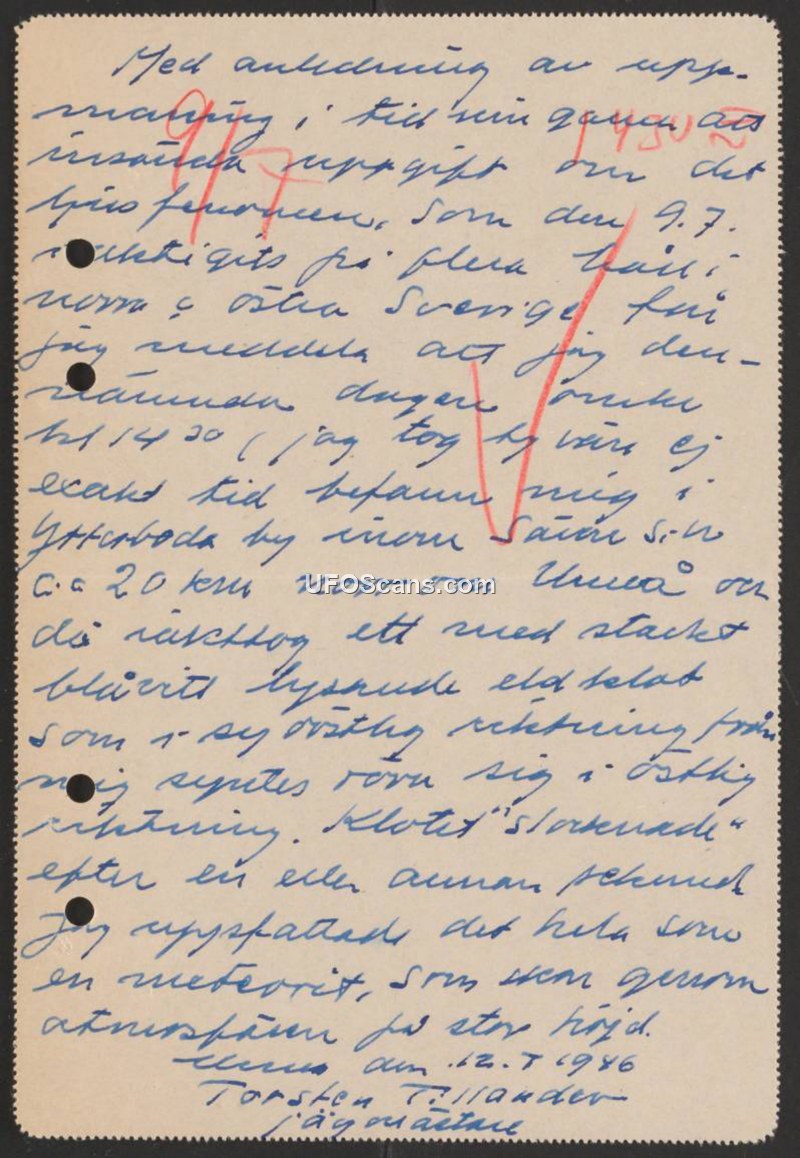 Med anledning av upp-
maning i tidningarna att
insända uppgift om det
ljusfenomen, som den 9.7.
iakttagits på flera håll i
norra o östra Sverige får
jag meddela att jag den-
nämnda dagen
kl 14 30 ( jag tog tyvärr ej
exakt tid befann mig i
Ytterboda by inom Sävar s:n
c:a 20 km om Umeå och
då iakttog ett med starkt
blåvitt lysande eldklot
som i sydöstlig riktning från
mig syntes röra sig i östlig
riktning. Klotet "slocknade"
efter en eller annan sekund
jag uppfattade det hela som
en meteorit, som skar genom
atmosfären på stor höjd.
Umeå den 12.7 1946
Torsten Tillander
jägmästare
9/7
1430
UFOScans.com